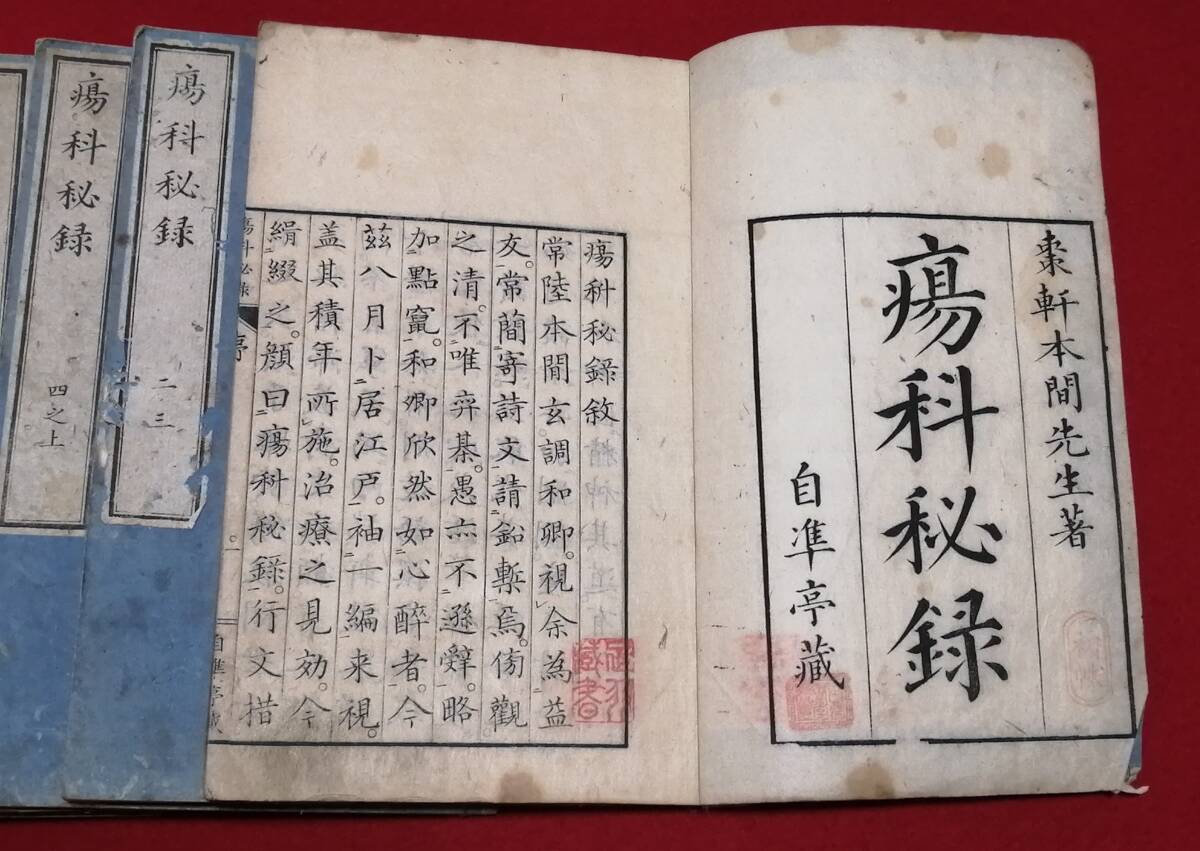 棗軒本間先生著
瘍科秘録
自準亭藏
瘍科秘録敘
常陸本間玄調和卿。視余為益
友。常蕳寄詩文請鉛槧焉。傍觀
之清。不唯弈棊。愚亦不遜辭。略
加點竄。和卿欣然如心醉者。今
玆八月卜居江戸。袖一編来視。
盖其積年所施。治療之見効。今
緝綴之。顔曰瘍科秘録。行文措
瘍科秘録
序
一
自準亭藏
瘍科秘録
二三
瘍科秘録
四之上